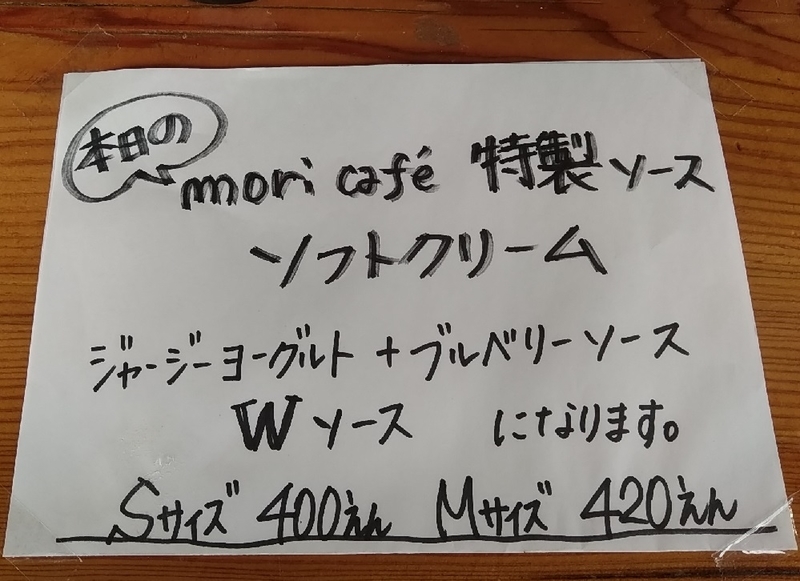 本日の
mori café 特製ソース
ソフトクリーム
ジャージーヨーグルト + ブルベリーソース
Wソース になります。
Sサイズ 400えん Mサイズ 420えん